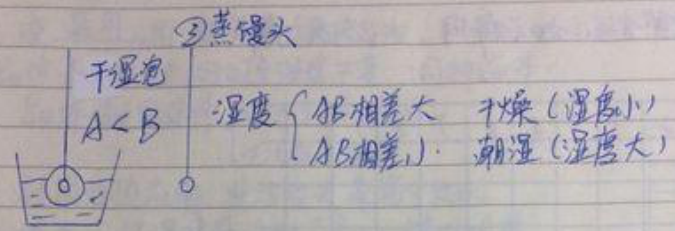 ③蒸馒头
干湿泡
A<B
湿度
AB相差大 干燥(湿度小)
AB相差小. 潮湿(湿度大)